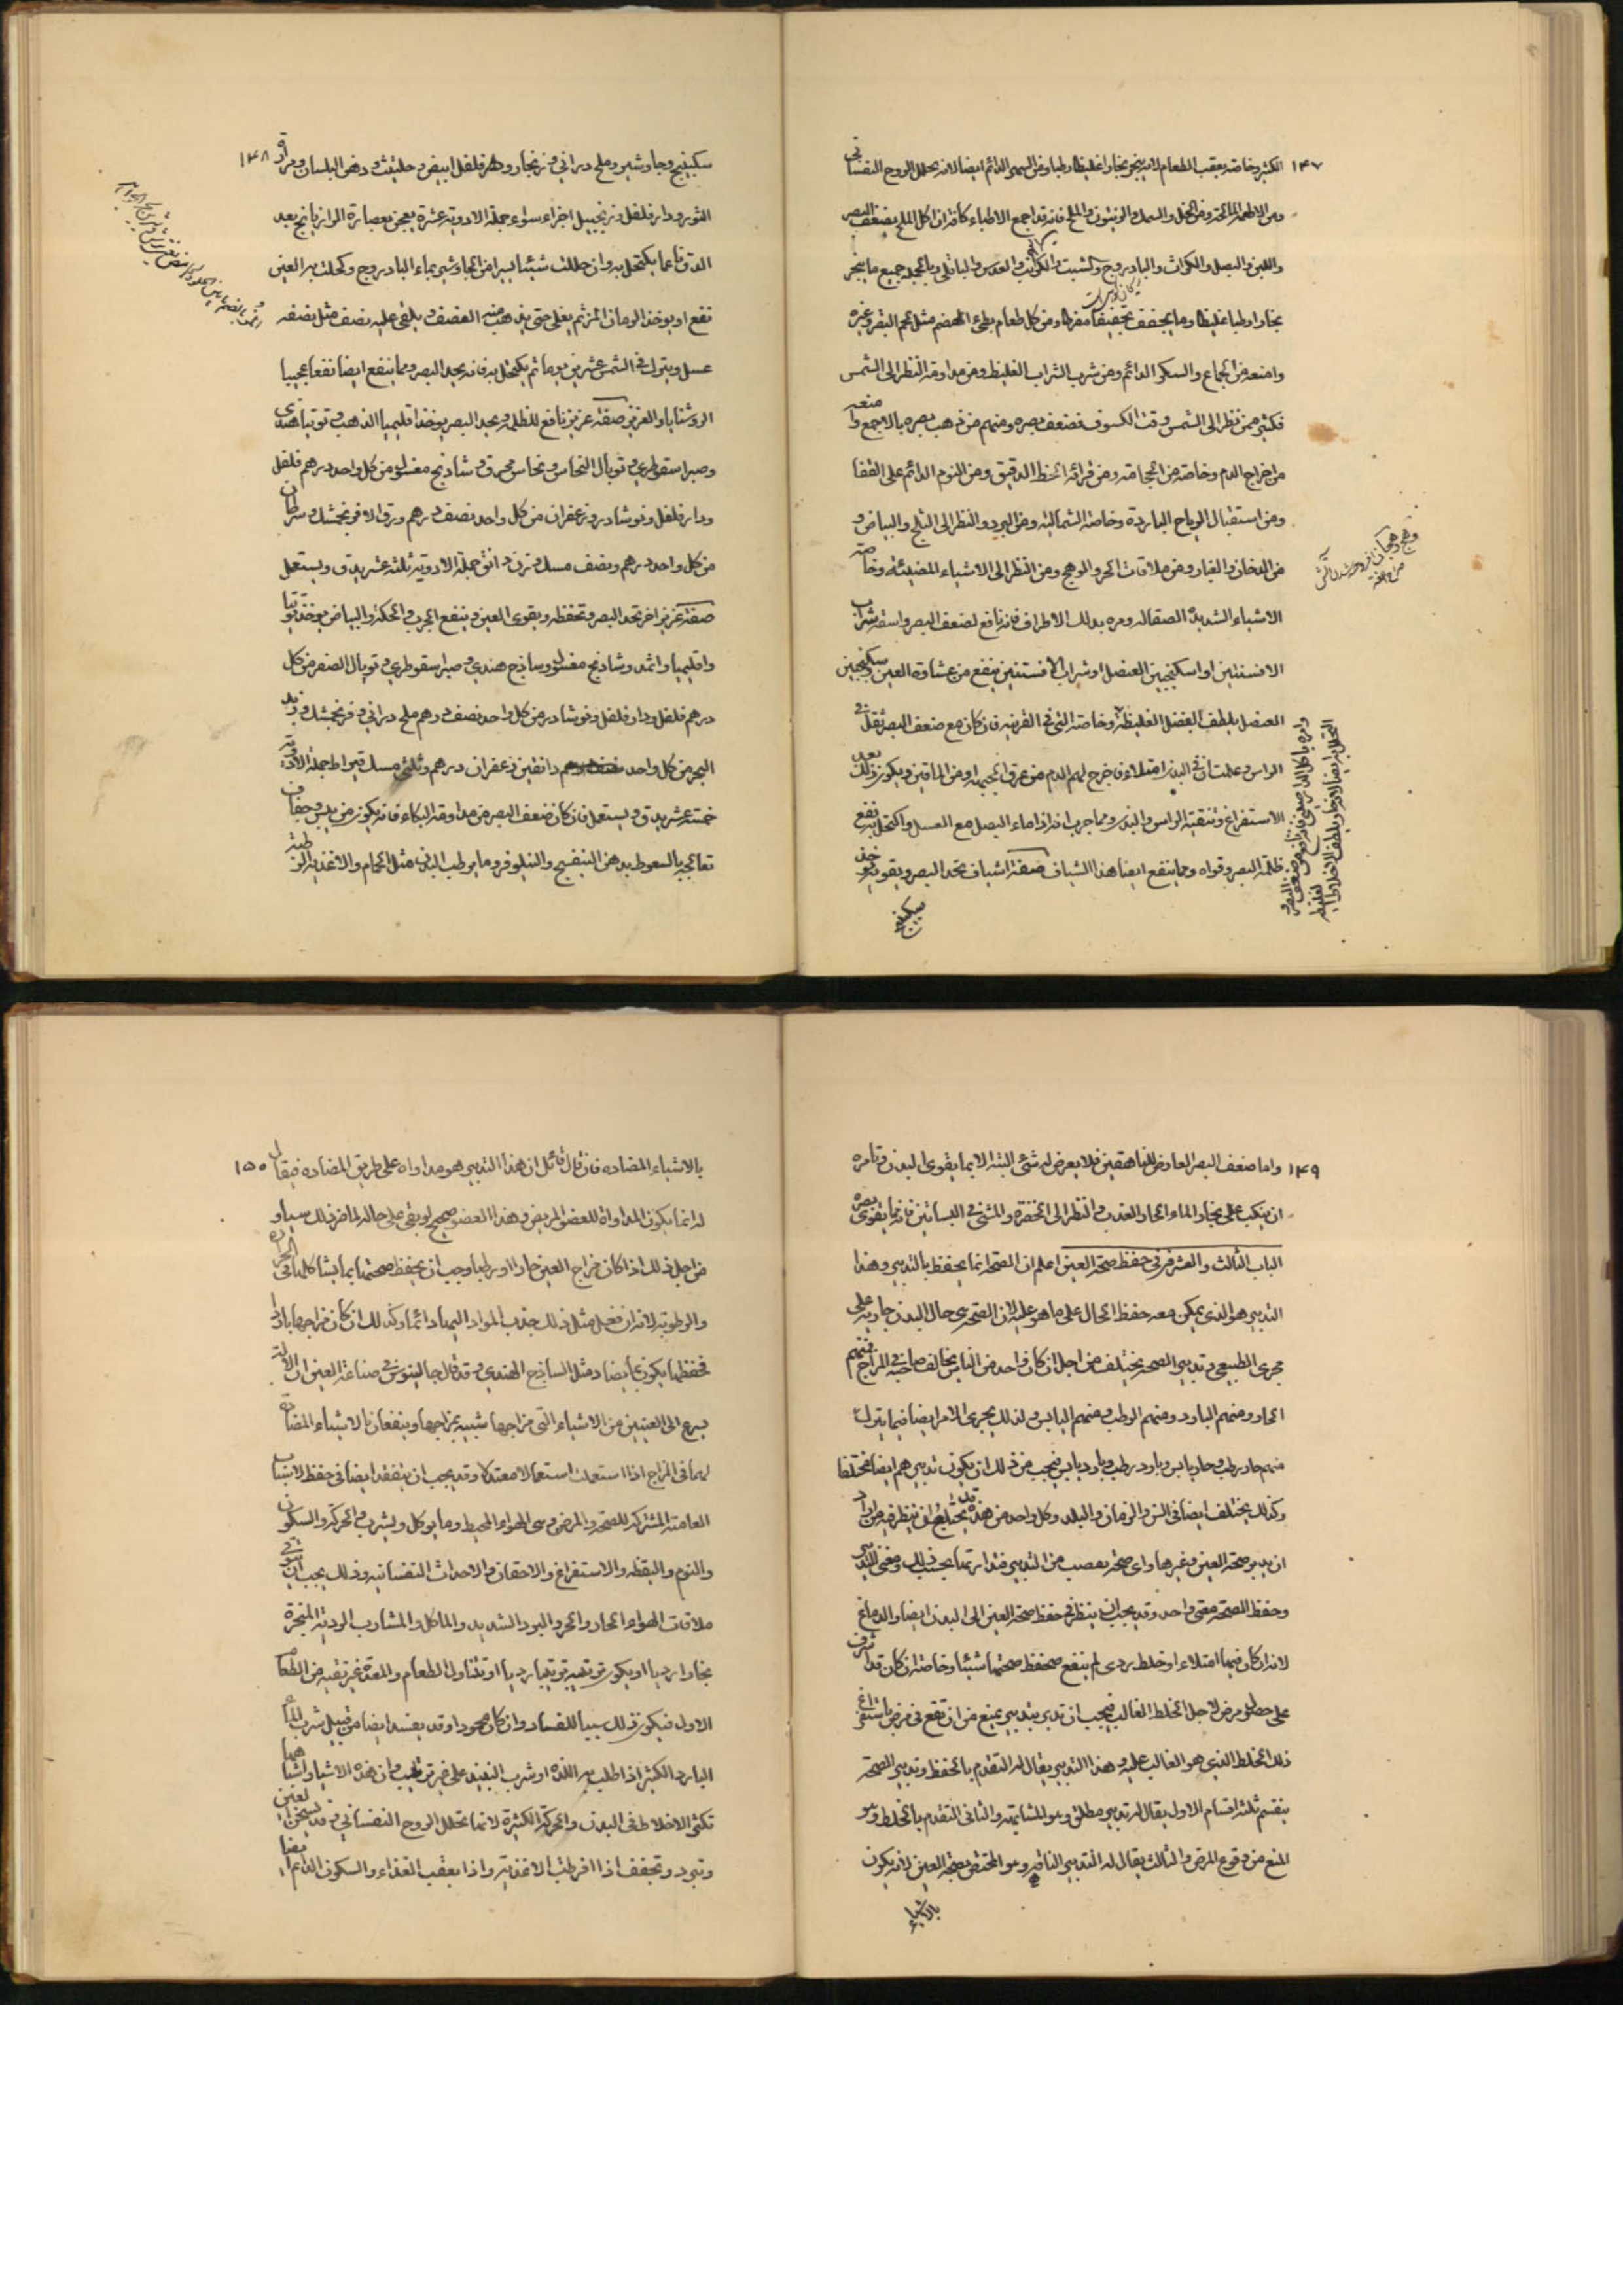 ١٤٧
الكثير وخاصة بعقب الطعام لانه يبخر بخارا غليظا رطبا ومن السهر الدائم ايضا لانه يحلل الروح النفساني
ومن الاطعمة المالحة ومن الخل والسمك والزيتون والملح فانه قد اجمع الاطباء كافة ان اكل الملح يضعف البصر
واللبن والبصل والكراث والبادروج والشبت والكرنب والعدس والباقلى وبالجملة جميع ما يبخر
بخارا رطبا غليظا وما يجفف تجفيفا مفرطا ومن كل طعام بطئ الهضم مثل لحم البقر وغيره
وامنعه من الجماع والسكر الدائم ومن شرب الشراب الغليظ ومن مداومة النظر الى الشمس
فكثير ممن نظر الى الشمس وقت الكسوف فضعف بصره ومنهم من ذهب بصره بالاجمع وامنعه
من اخراج الدم وخاصة من الحجامة ومن قرائة الخط الدقيق ومن النوم الدائم على القفا
ومن استقبال الرياح الباردة وخاصة الشمالية ومن البرد والنظر الى الثلج والبياض و
من الدخان والغبار ومن ملاقات الحر والوهج ومن النظر الى الاشياء المضيئة وخاصة
الاشياء الشديدة الصقاله ومره بدلك الاطراف فانه نافع لضعف البصر واسقه شراب
الافسنتين او اسكنجبين العنصل او شراب الافسنتين ينفع من غشاوة العين وسكنجبين
العنصل يلطف الفضل الغليظة وخاصة التي في القرنيه فان كان مع ضعف البصر ثقل في
الراس وعلمت ان في البدن امتلاء فاخرج لهم الدم من عرق الجبهه او من الماقين ويكون ذلك بعد
الاستفراغ وتنقية الراس والبدن ومما جرب انه اذا ماء البصل مع العسل واكتحل به نفع
ظلمة البصر وقواه ومما ينفع ايضا هذا الشياف صفة اشياف يحد البصر ويقويه يؤخذ
سكبينج
١٤٨
سكبينج وجاوشير وملح دراني وزنجار وفلفل ابيض وحلتيت ودهن البلسان ومرارة
الثور ودارفلفل وزنجبيل اجزاء سواء جملة الادوية عشرة يعجن بعصارة الرازيانج بعد
الدق ناعما يكتحل به وان حللت شيئا يسيرا من الجاوشير بماء البادروج وكحلت به العين
نفع او يوخذ الرمان المز ثم يغلى حتى يذهب منه النصف ويلقى عليه نصف مثل نصفه
عسل ويترك في الشمس عشرين يوما ثم يكتحل به فانه يحد البصر ومما ينفع ايضا نفعا عجيبا
الروشنايا والعزيز صفة عزيز نافع للظلمة ويحد البصر يوخذ اقليميا الذهب وتوتيا هندي
وصبر اسقوطري وتوبال النحاس ونحاس محرق وشادنج مغسول من كل واحد درهم فلفل
ودارفلفل ونوشادر وزعفران من كل واحد نصف درهم ورق الافرنجمشك وسرطان
من كل واحد درهم ونصف مسك وزن دانق جملة الادوية ثلثة عشر يدق ويستعمل
صفة عزيز اخر تحد البصر وتحفظه ويقوى العين وينفع الجرب والحكة والبياض يوخذ توتيا
واقليميا واثمد وشادنج مغسول وساذج هندي وصبر سقوطري وتوبال الصفر من كل
درهم فلفل ودارفلفل ونوشادر من كل واحد نصف درهم ملح دراني وفرنجمشك وزبد
البحر من كل واحد دانقين زعفران درهم وثلثي مسك قيراط جملة الادوية
خمسة عشر يدق ويستعمل فان كان ضعف البصر من مداومة البكاء فانه يكون من يبس وجفاف
تعالجه بالسعوط بدهن البنفسج والنيلوفر وما يرطب البدن مثل الحمام والاغذية الرطبة
١٤٩
واما ضعف البصر العارض للناهقين فلا يعرض له شئ البتة الا بما يقوى البدن وتامره
ان ينكب على بخار الماء الحار العذب والنظر الى الخضرة والمشي في البساتين فانه مما يقوى بصره
الباب الثالث والعشرون في حفظ صحة العين اعلم ان الصحة انما يحفظ بالتدبير وهذا
التدبير هو الذي يمكن معه حفظ الحال على ما هو عليه لان الصحة هي حال البدن جارية على
مجرى الطبيعي وتدبير الصحة يختلف من اجل ان كان واحد من الناس يخالف صاحبه في المزاج فمنهم
الحار ومنهم البارد ومنهم الرطب ومنهم اليابس ولذلك يجري الامر ايضا فيما يتركب
منهم حار رطب وحار يابس وبارد رطب وبارد يابس فيجب من ذلك ان يكون تدبيرهم ايضا مختلفا
وكذلك يختلف ايضا في السن والزمان والبلد وكل واحد من هذه قد يحتاج ان ينظر فيه من اراد
ان يدبر صحة العين وغيرها واى صحة بحسب ذلك ومعنى التدبير
وحفظ الصحة معنى واحد وقد يجب ان ينظر في حفظ صحة العين الى البدن ايضا والدماغ
لانه ان كان فيهما امتلاء او خلط ردى لم ينفع حفظ صحتها شيئا وخاصة ان كان قد اشرف
على حصول مرض لاجل الخلط الغالب فيجب ان تدبر بتدبير يمنع من ان تقع في مرض باستفراغ
ذلك الخلط الذي هو الغالب عليه وهذا التدبير يقال له التقدم بالحفظ وتدبير الصحة
ينقسم ثلثة اقسام الاول يقال له تدبير مطلق وهو المشابهة والثاني التقدم بالخلط وهو
المنع من وقوع المرض والثالث يقال له التدبير الناقه وهو المختص بصحة العين لانه يكون
بالاشياء
١٥٠
بالاشياء المضاده فان قال قائل ان هذا التدبير هو مداواه على طريق المضاده فيقال
له انما يكون المداواة للعضو المريض وهذا العضو صحيح
من اجل ذلك اذا كان مزاج العين حارا او رطبا وجب ان يحفظ صحتها بما يشاكلها في الحرارة
والرطوبة لانه ان فعل مثل ذلك جذب المواد اليها دائما وكذلك ان كان مزاجها باردا
فحفظها يكون بما يضاد مثل الساذج الهندي وقد قال جالينوس في صناعة العين ان الالة
يسرع الى العينين من الاشياء التي مزاجها شبيه بمزاجها وينفعان بالاشياء المضادة
لهما في المزاج اذا استعملت استعمالا معتدلا وقد يجب ان يتفقد ايضا في حفظ الاسباب
العامة المشتركة للصحة والمرض وهى الهواء المحيط وما يوكل ويشرب والحركة والسكون
والنوم واليقظه والاستفراغ والاحقان والاحداث النفسانيه وذلك يجب ان يتوقى
ملاقات الهواء الحار والحر والبرد الشديد والماكل والمشارب الردية المبخرة
بخارا رديا او يكون ترتيبه ترتيبا رديا او تناول الطعام والمعدة غير نقيه من الطعام
الاول فيكون ذلك سببا للفساد وان كان محمودا وقد يفسد ايضا من قبيل شرب الماء
البارد الكثير اذا طلب به اللذه او شرب النبيذ على غير ترتيب وان هذه الاشياء واشباهها
تكثر الاخلاط في البدن والحركة الكثيرة لانها تحلل الروح النفساني وقد يسخن العين
وتبرد وتجفف اذا افرطت الاغذية واذا بعقب الغذاء والسكون الدائم ايضا